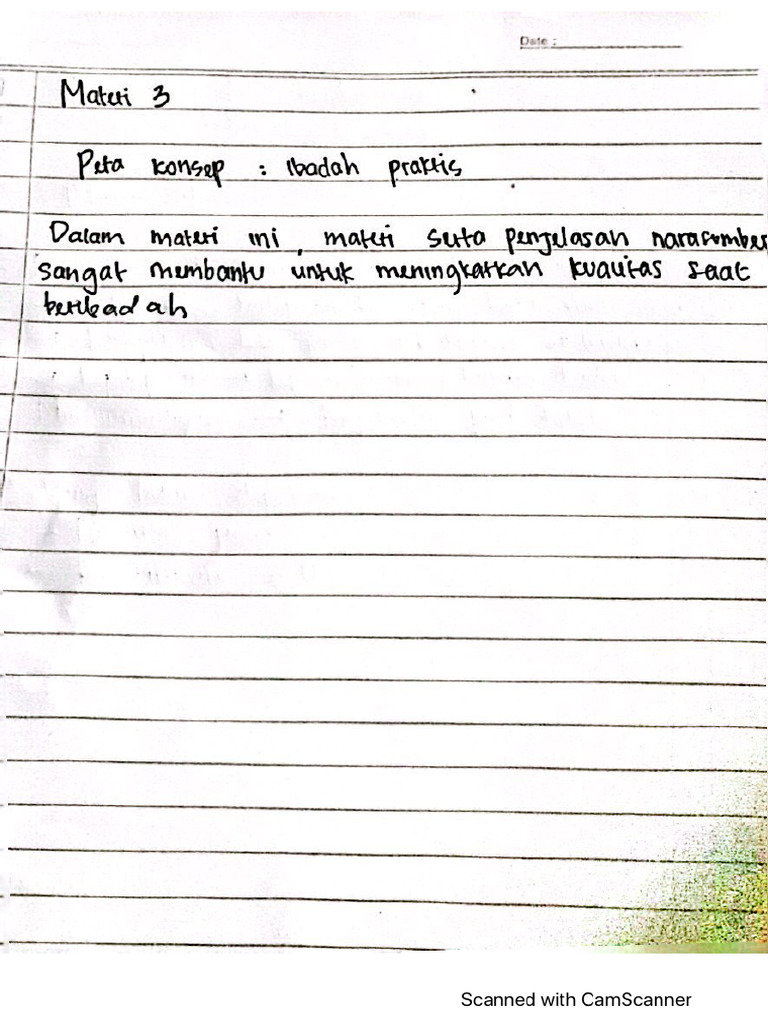 Date :
Materi 3
Peta konsep : Ibadah praktis
Dalam materi ini, materi serta penjelasan narasumber
sangat membantu untuk meningkatkan kualitas saat
beribadah
Scanned with CamScanner